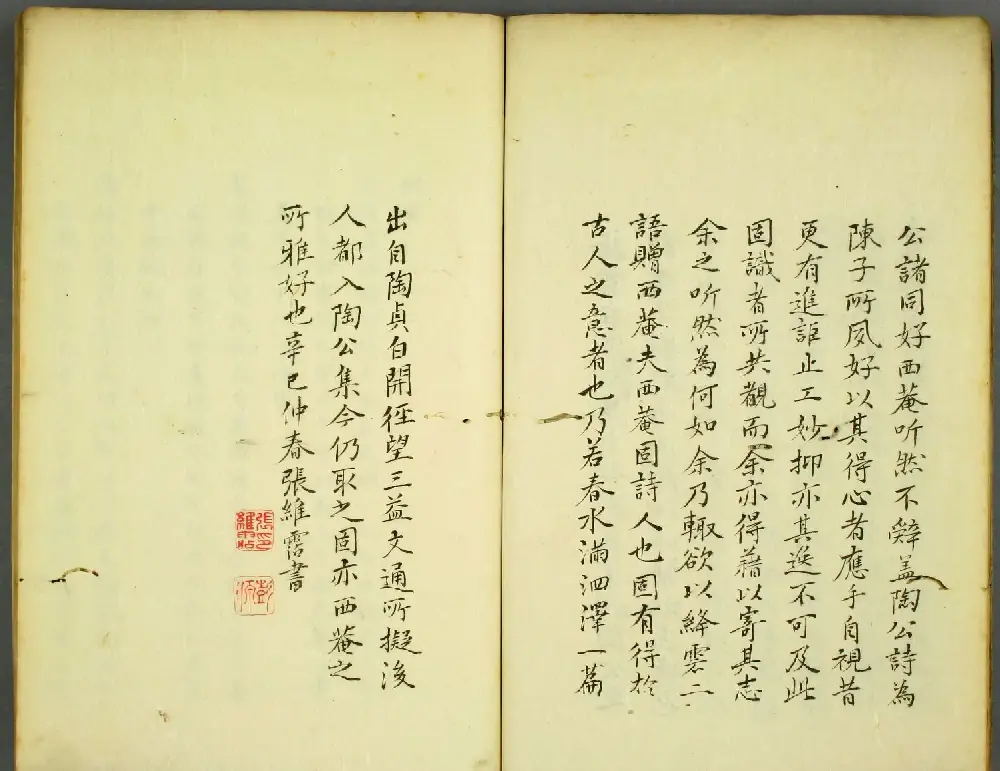 公諸同好西菴听然不辤盖陶公詩為
陳子所夙好以其得心者應手自視昔
更有進詎止工妙抑亦其逸不可及此
固識者所共觀而余亦得藉以寄其志
余之听然為何如余乃輙欲以絳雲二
語贈西菴夫西菴固詩人也固有得於
古人之意者也乃若春水滿泗澤一篇
出自陶貞白開徑望三益文通所擬後
人都入陶公集今仍取之固亦西菴之
所雅好也辛巳仲春張維霑書